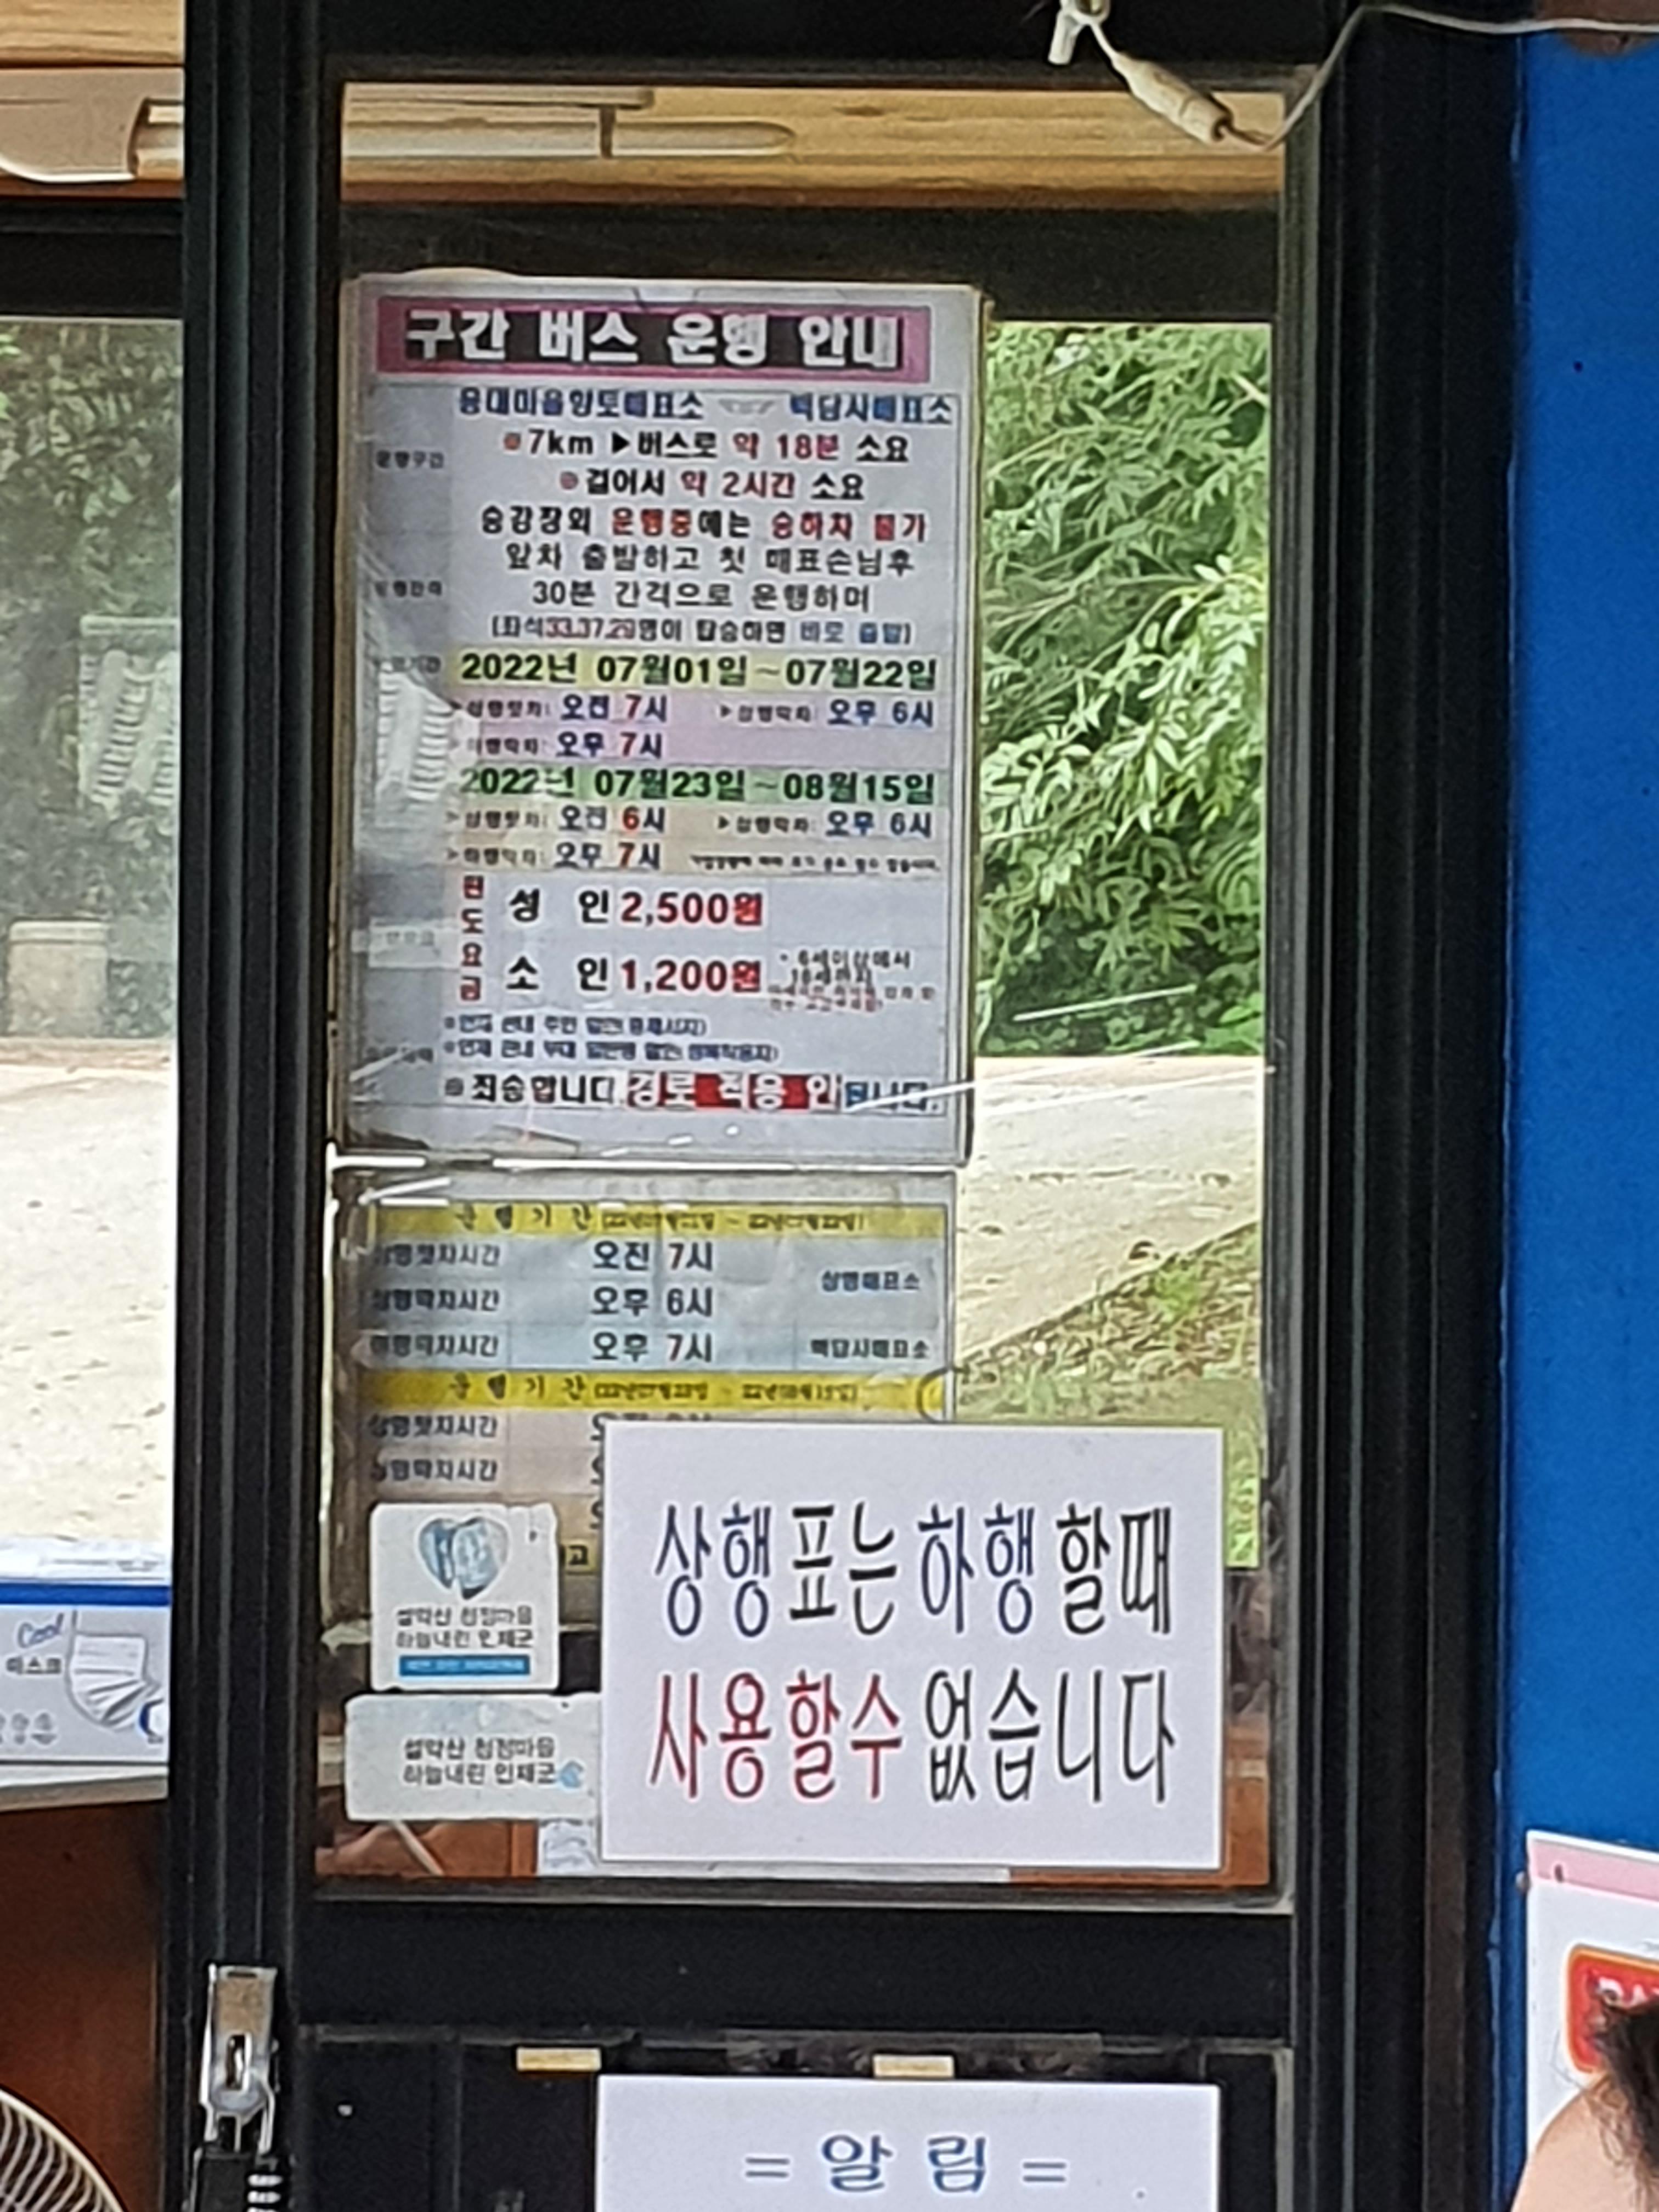 구간 버스 운행 안내
용대마을향토매표소 백담사매표소
운행구간
※7km ▶버스로 약 18분 소요
※걸어서 약 2시간 소요
승강장외 운행중에는 승하차 불가
앞차 출발하고 첫 매표손님후
30분 간격으로 운행하며
(좌석33.37.29명이 탑승하면 바로 출발)
2022년 07월01일~07월22일
▶상행첫차: 오전 7시 ▶상행막차: 오후 6시
▶하행막차: 오후 7시
2022년 07월23일~08월15일
▶상행첫차: 오전 6시 ▶상행막차: 오후 6시
▶하행막차: 오후 7시
편도요금
성 인 2,500원
소 인 1,200원
* 6세이상에서
※인제 관내 주민 할인
※인제 관내 부대
※죄송합니다 경로 적용 안됩니다.
운행기간
상행첫차시간 오전 7시 상행매표소
상행막차시간 오후 6시
하행막차시간 오후 7시 백담사매표소
운행기간
상행첫차시간
상행막차시간
설악산 청정마을
하늘내린 인제군
설악산 청정마을
하늘내린 인제군
상행표는 하행할때
사용할수 없습니다
Cool
마스크
= 알 림 =